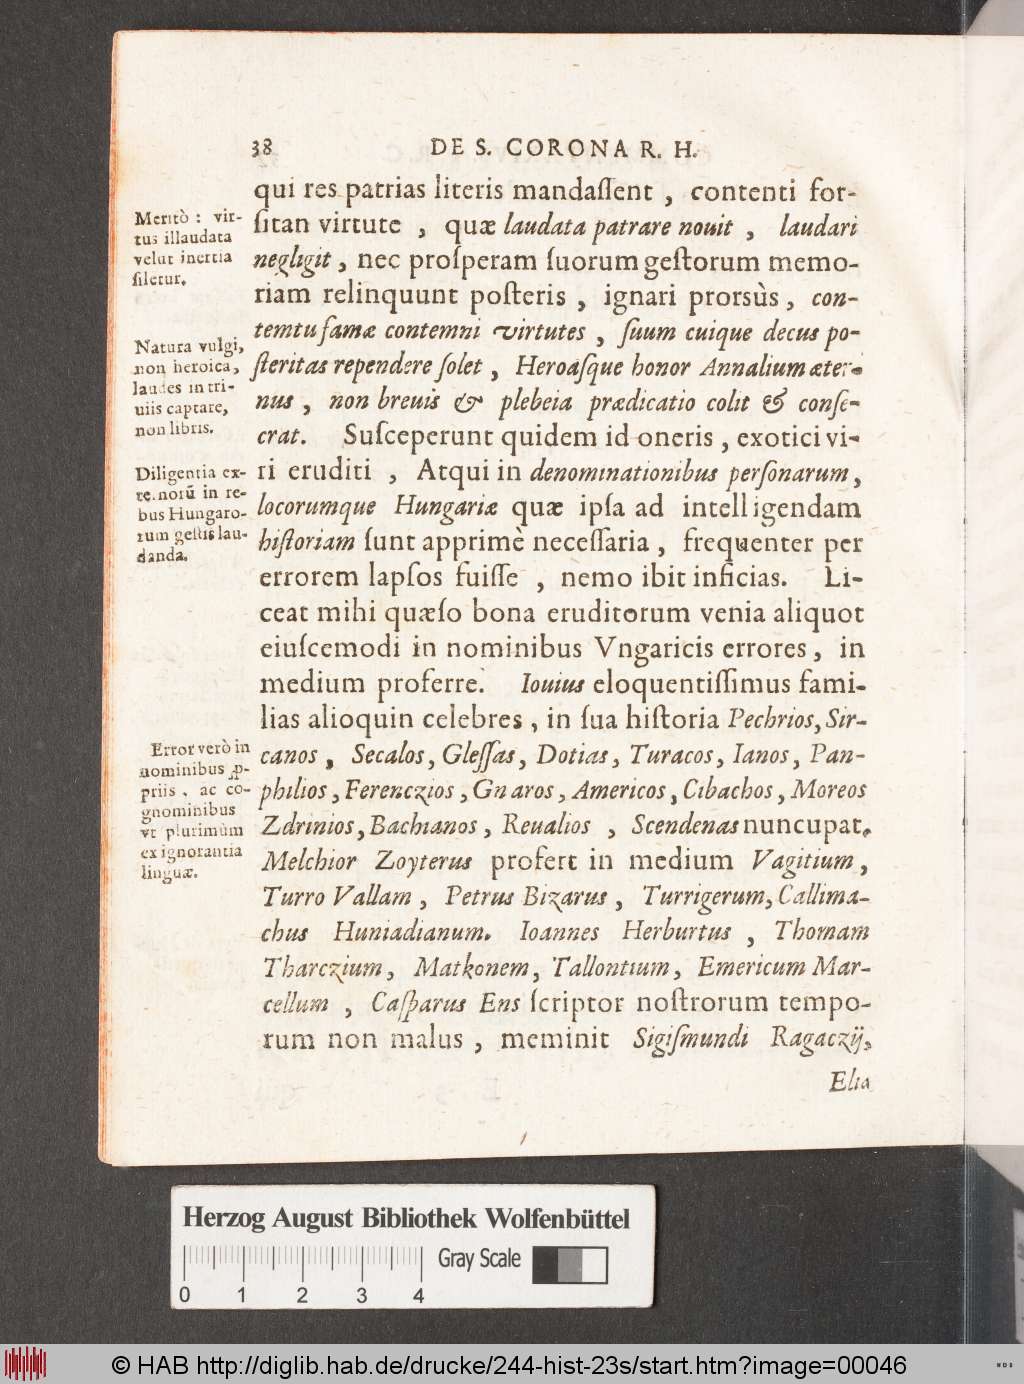 38 DE S. CORONA R. H.
qui res patrias literis mandaſſent , contenti for-
ſitan virtute , quæ laudata patrare nouit , laudari
negligit , nec proſperam ſuorum geſtorum memo-
riam relinquunt poſteris , ignari prorsùs , con-
temtu famæ contemni virtutes , ſuum cuique decus po-
ſteritas rependere ſolet , Heroáſque honor Annalium æter-
nus , non breuis & plebeia prædicatio colit & conſe-
crat. Suſceperunt quidem id oneris , exotici vi-
ri eruditi , Atqui in denominationibus perſonarum ,
locorumque Hungariæ quæ ipſa ad intelligendam
hiſtoriam ſunt apprimè neceſſaria , frequenter per
errorem lapſos fuiſſe , nemo ibit inficias. Li-
ceat mihi quæſo bona eruditorum venia aliquot
eiuſcemodi in nominibus Vngaricis errores , in
medium proferre. Iouius eloquentiſſimus fami-
lias alioquin celebres , in ſua hiſtoria Pechrios, Sir-
canos , Secalos, Gleſſas, Dotias, Turacos, Ianos, Pan-
philios , Ferenczios , Gnaros, Americos, Cibachos, Moreos
Zdrinios, Bachianos , Reualios , Scendenas nuncupat.
Melchior Zoyterus profert in medium Vagitium ,
Turro Vallam , Petrus Bizarus , Turrigerum, Callima-
chus Huniadianum. Ioannes Herburtus , Thomam
Tharczium, Matkonem, Tallontium, Emericum Mar-
cellum , Caſparus Ens ſcriptor noſtrorum tempo-
rum non malus , meminit Sigiſmundi Ragaczij,
Elia
Meritò : vir-
tus illaudata
velut inertia
ſiletur.
Natura vulgi,
non heroica,
laudes in tri-
uiis captare,
non libris.
Diligentia ex-
ternorũ in re-
bus Hungaro-
rum geſtis lau-
danda.
Error verò in
nominibus ꝓ-
priis , ac co-
gnominibus
vt plurimùm
ex ignorantia
linguæ.
Herzog August Bibliothek Wolfenbüttel
Gray Scale
0 1 2 3 4
© HAB http://diglib.hab.de/drucke/244-hist-23s/start.htm?image=00046